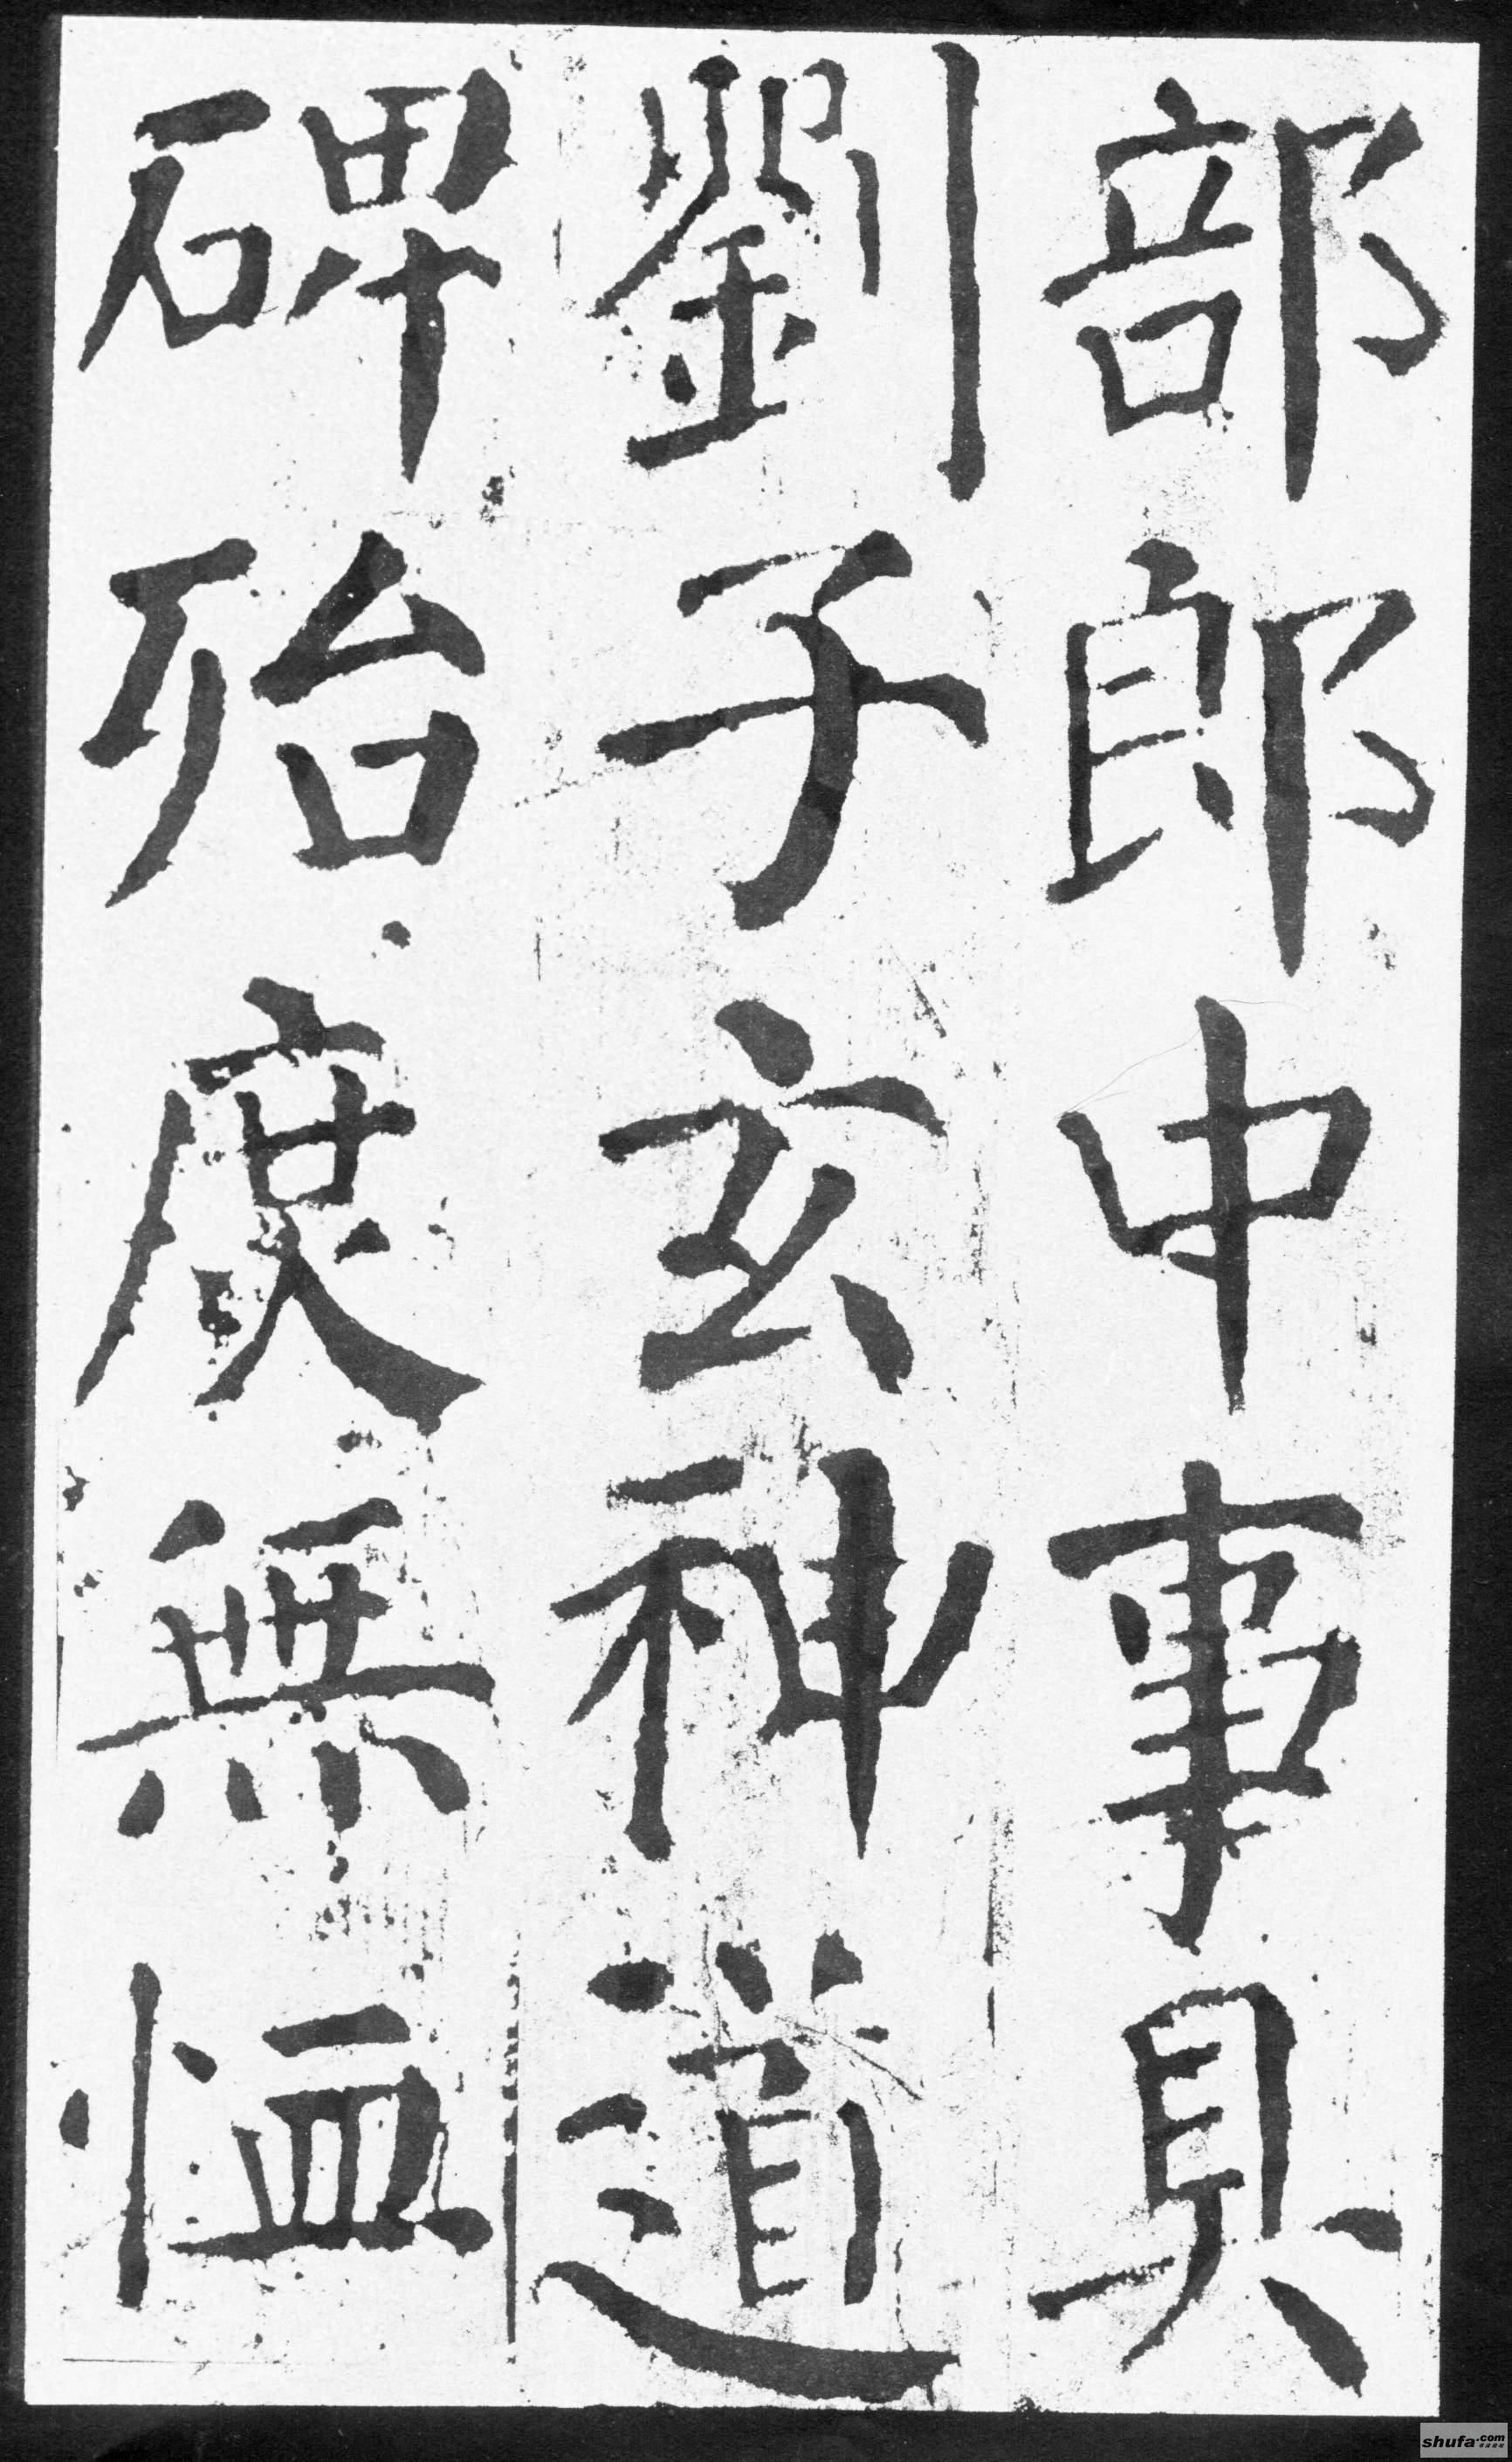 部郎中事具
劉子玄神道
碑殆庶無恤
shufa.com